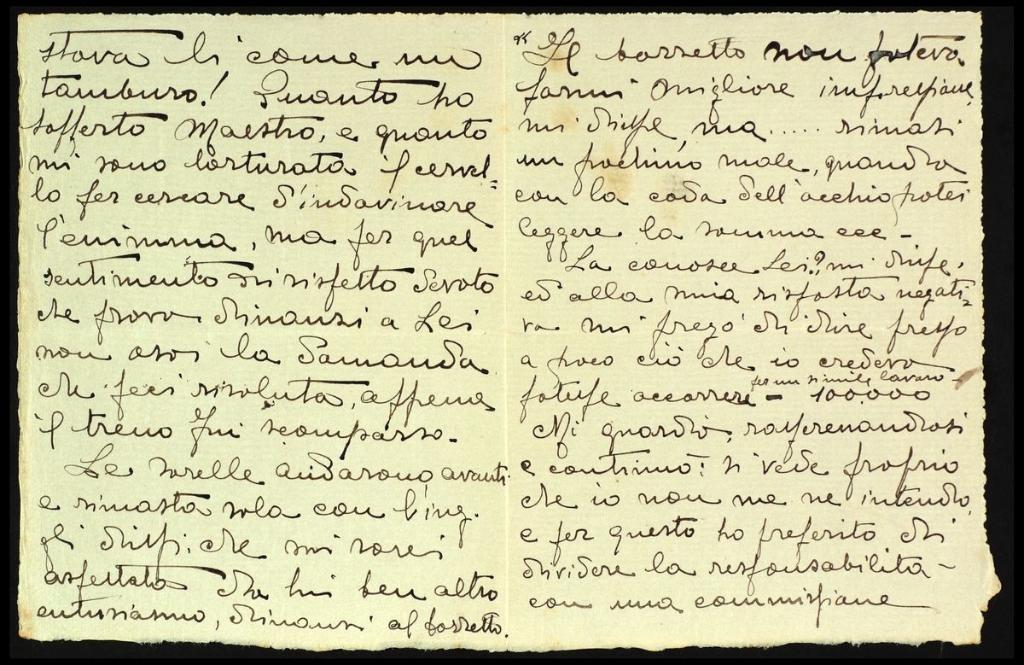 stava lì come un
tamburo! Quanto ho
sofferto Maestro, e quanto
mi sono torturata il cervel-
lo per cercare d'indovinare
l'enimma, ma per quel
sentimento di rispetto devoto
che provo dinanzi a Lei
non osai la domanda
che feci risoluta, appena
il treno fui scomparso.
Le sorelle andarono avanti
e rimasta sola con l'ing.
gli dissi: che mi sarei
aspettata da lui ben altro
entusiasmo, dinanzi al bozzetto.
" Il bozzetto non poteva
farmi migliore impressione,
mi disse, ma..... rimasi
un pochino male, quando
con la coda dell'occhio potei
leggere la somma ecc -
La conosce Lei? mi disse,
ed alla mia risposta negati-
va mi pregò di dire presso
a poco ciò che io credevo
potesse occorrere per un simile lavoro - 100.000
Mi guardò, rasserenandosi
e continuò: si vede proprio
che io non me ne intendo,
e per questo ho preferito di
dividere la responsabilità -
con una commissione